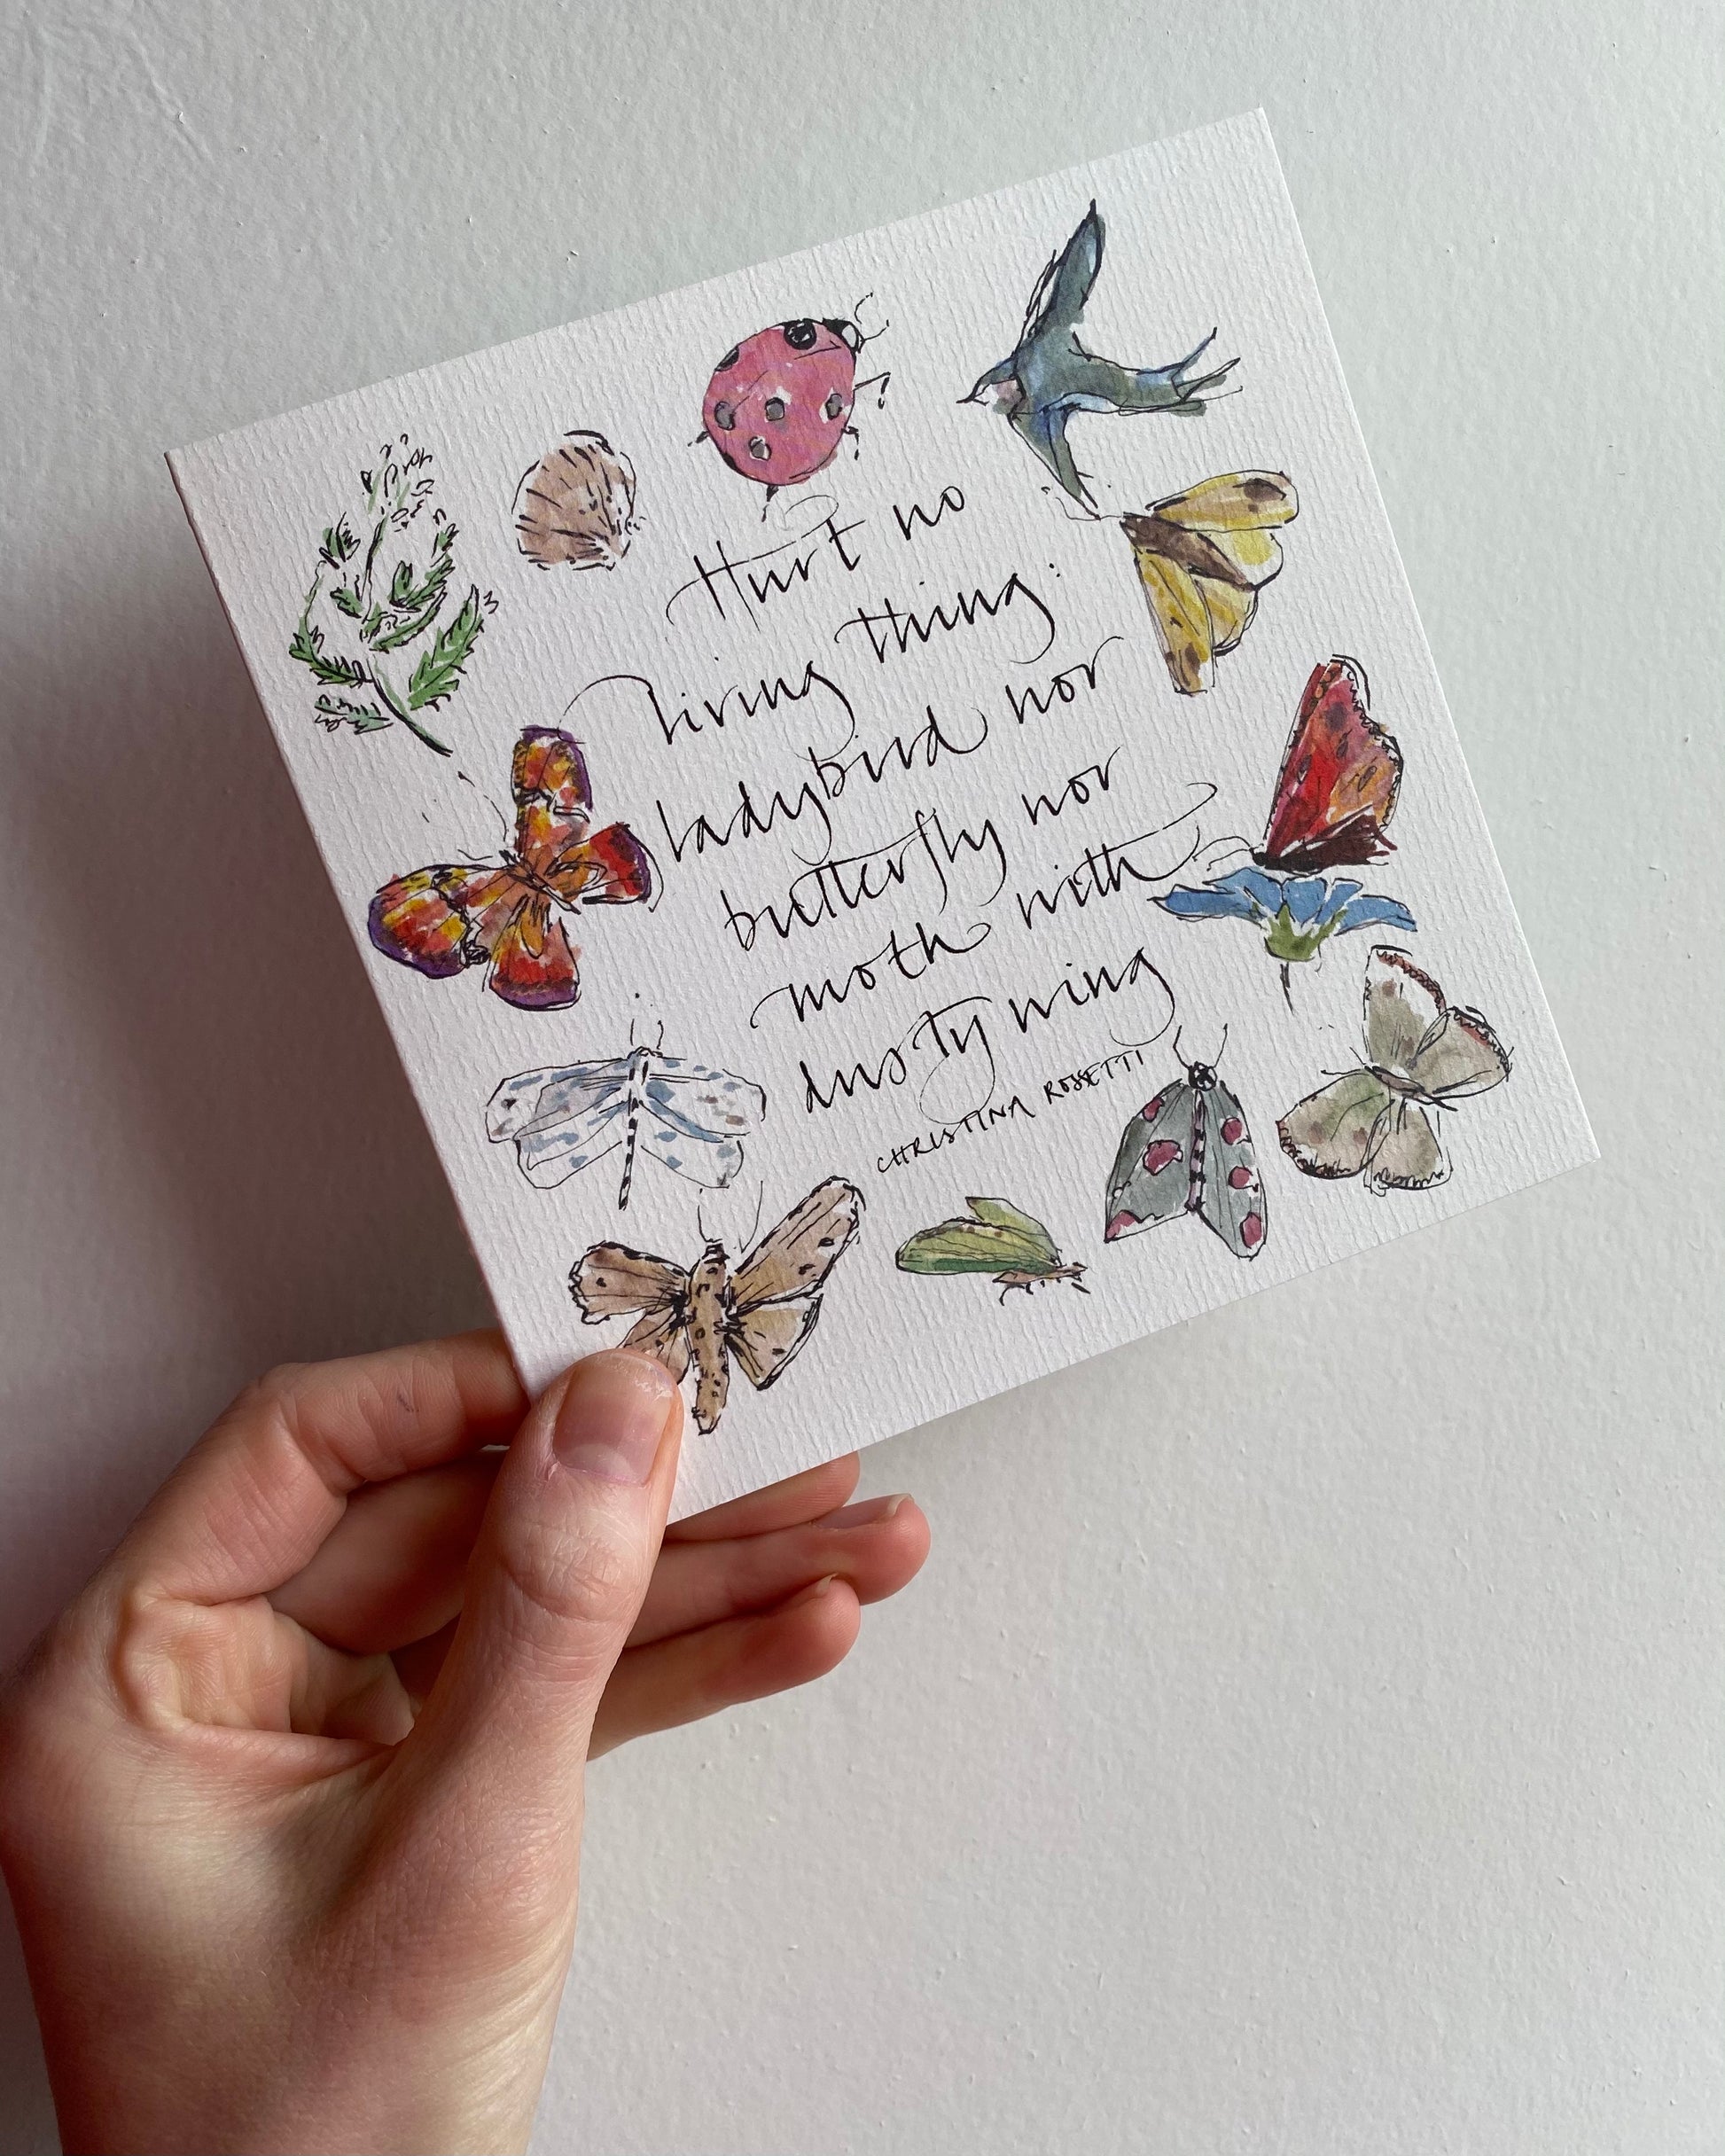 Hurt no
living thing:
ladybird nor
butterfly nor
moth with
dusty wing
CHRISTINA ROSSETTI